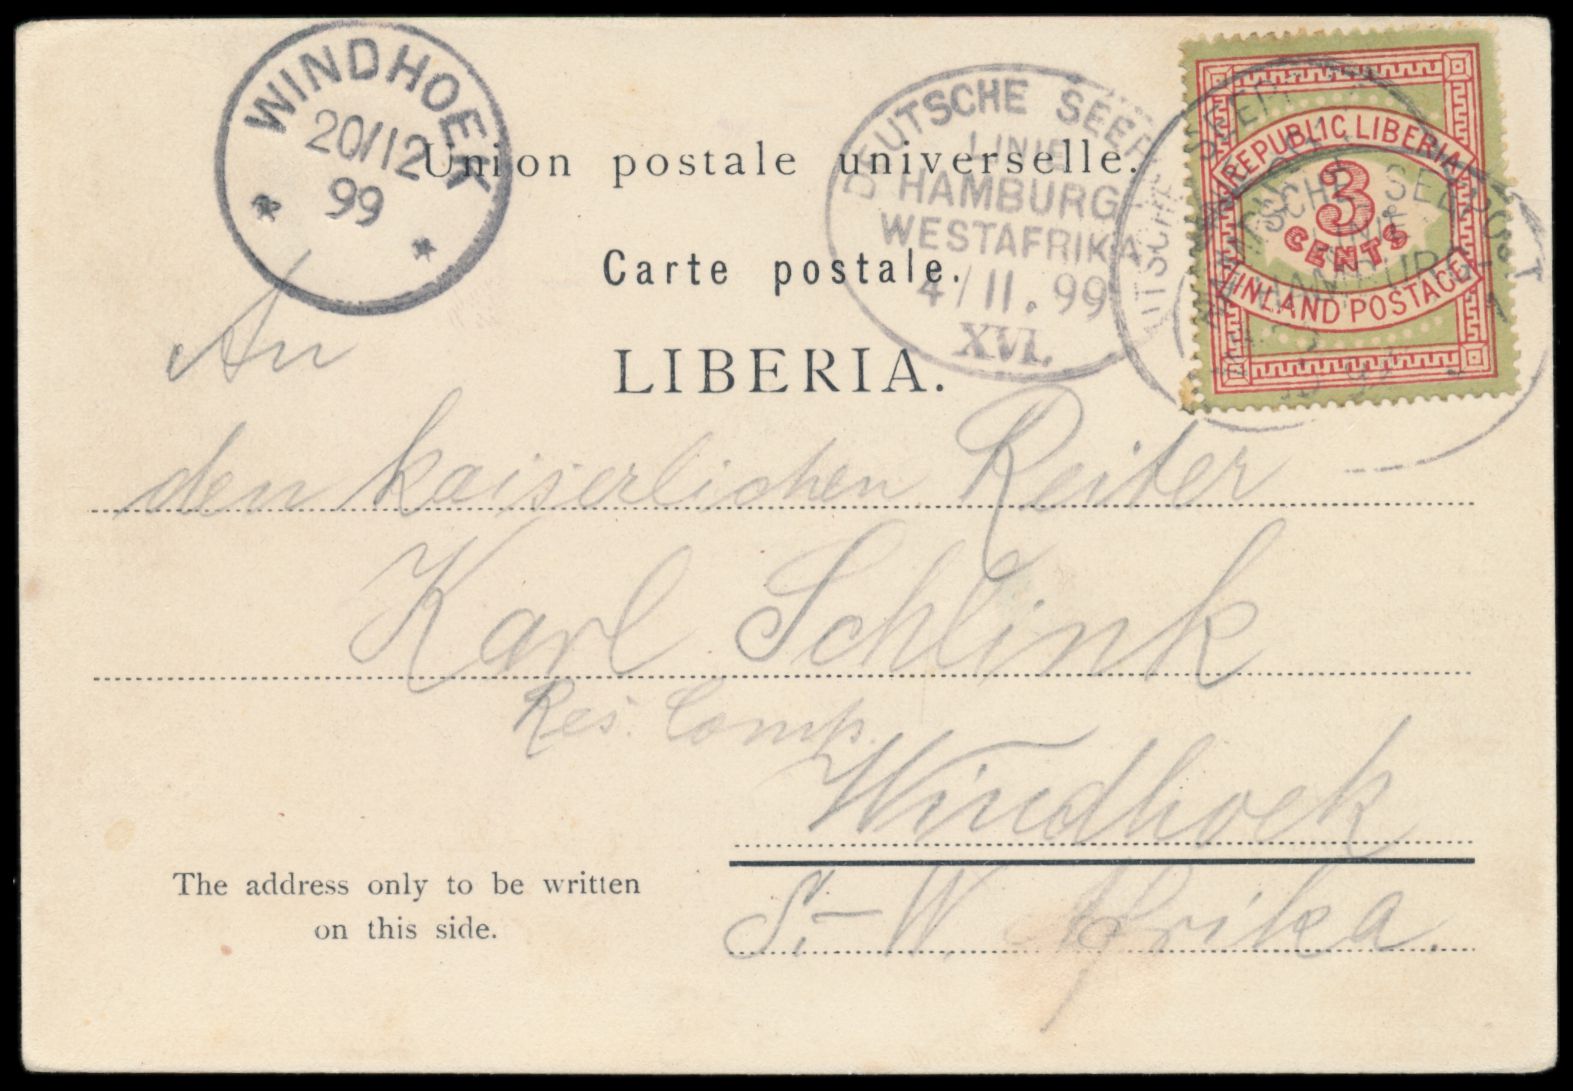 WINDHOEK
20/12
99
DEUTSCHE SEEP
LINIE
HAMBURG
WESTAFRIKA
4/11.99
XVI.
REPUBLIC LIBERIA
3
CENTS
INLAND POSTAGE
SCHE SEEPOST
LINIE
HAMBURG-
Union postale universelle.
Carte postale.
LIBERIA.
An
den kaiserlichen Reiter
Karl Schlink
Res. Comp.
Windhoek
S.-W. Afrika.
The address only to be written
on this side.